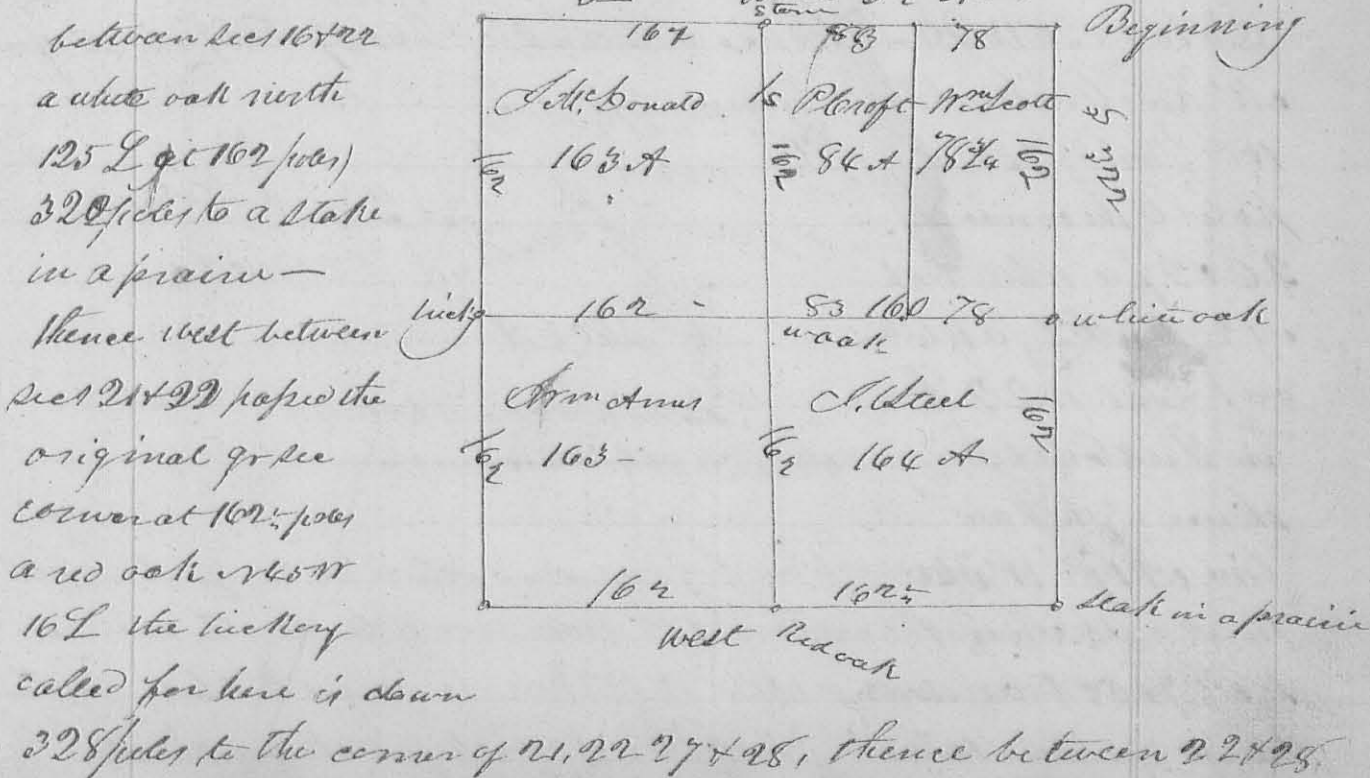 stone
between secs 16 & 22
a white oak north
125 L at 162 poles)
320 poles to a stake
in a prairie —
thence west between
secs 21 & 22 passed the
original qr sec
corner at 162 ½ poles
a red oak N 45 W
16 L the hickory
called for here is down
328 poles to the corner of 21, 22 27 & 28, thence between 22 & 28
162 78 Beginning
J. McDonald P Croft Wm Scott
162 163 A 162 84 A 78 ¾ 162
hick 162 83 160 78 white oak
w oak
J. Steel
162 163 162 164 A 162
162 162 ½ stak in a prairie
West Red oak